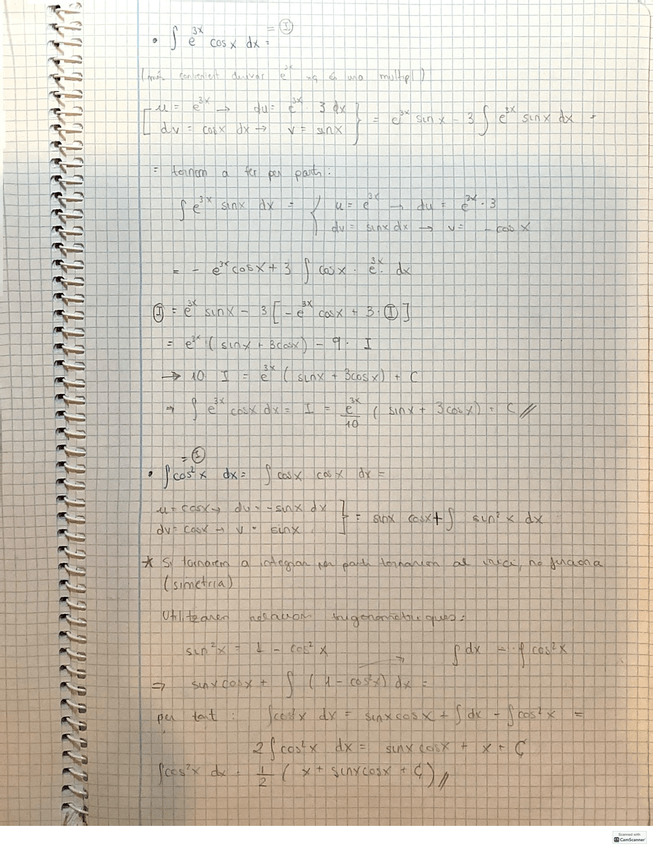 = Ⓘ
• ∫ e^{3x} cos x dx =
(més convenient derivar e^{3x} xq és una multipl)
[ u = e^{3x} → du = e^{3x} 3 dx
dv = cos x dx → v = sin x } = e^{3x} sin x - 3 ∫ e^{3x} sin x dx =
= tornem a fer per parts:
∫ e^{3x} sin x dx = { u = e^{3x} → du = e^{3x} · 3
dv = sin x dx → v = - cos x
= - e^{3x} cos x + 3 ∫ cos x · e^{3x} dx
Ⓘ = e^{3x} sin x - 3 [ - e^{3x} cos x + 3 · Ⓘ ]
= e^{3x} ( sin x + 3cos x ) - 9 · I
→ 10 I = e^{3x} ( sin x + 3cos x ) + C
⇒ ∫ e^{3x} cos x dx = I = e^{3x}/10 ( sin x + 3cos x ) + C //
= Ⓘ
• ∫ cos² x dx = ∫ cos x cos x dx =
u = cos x → du = - sin x dx
dv = cos x → v = sin x } = sin x cos x + ∫ sin² x dx
* Si tornarem a integrar per parts tornariem al inici, no funciona
(simetria)
Utilitzarem relacions trigonometriques:
sin² x = 1 - cos² x ∫ dx - ∫ cos² x
⇒ sin x cos x + ∫ ( 1 - cos² x ) dx =
per tant : ∫ cos² x dx = sin x cos x + ∫ dx - ∫ cos² x =
2 ∫ cos² x dx = sin x cos x + x + C
∫ cos² x dx = 1/2 ( x + sin x cos x + C ) //
Scanned with
CamScanner